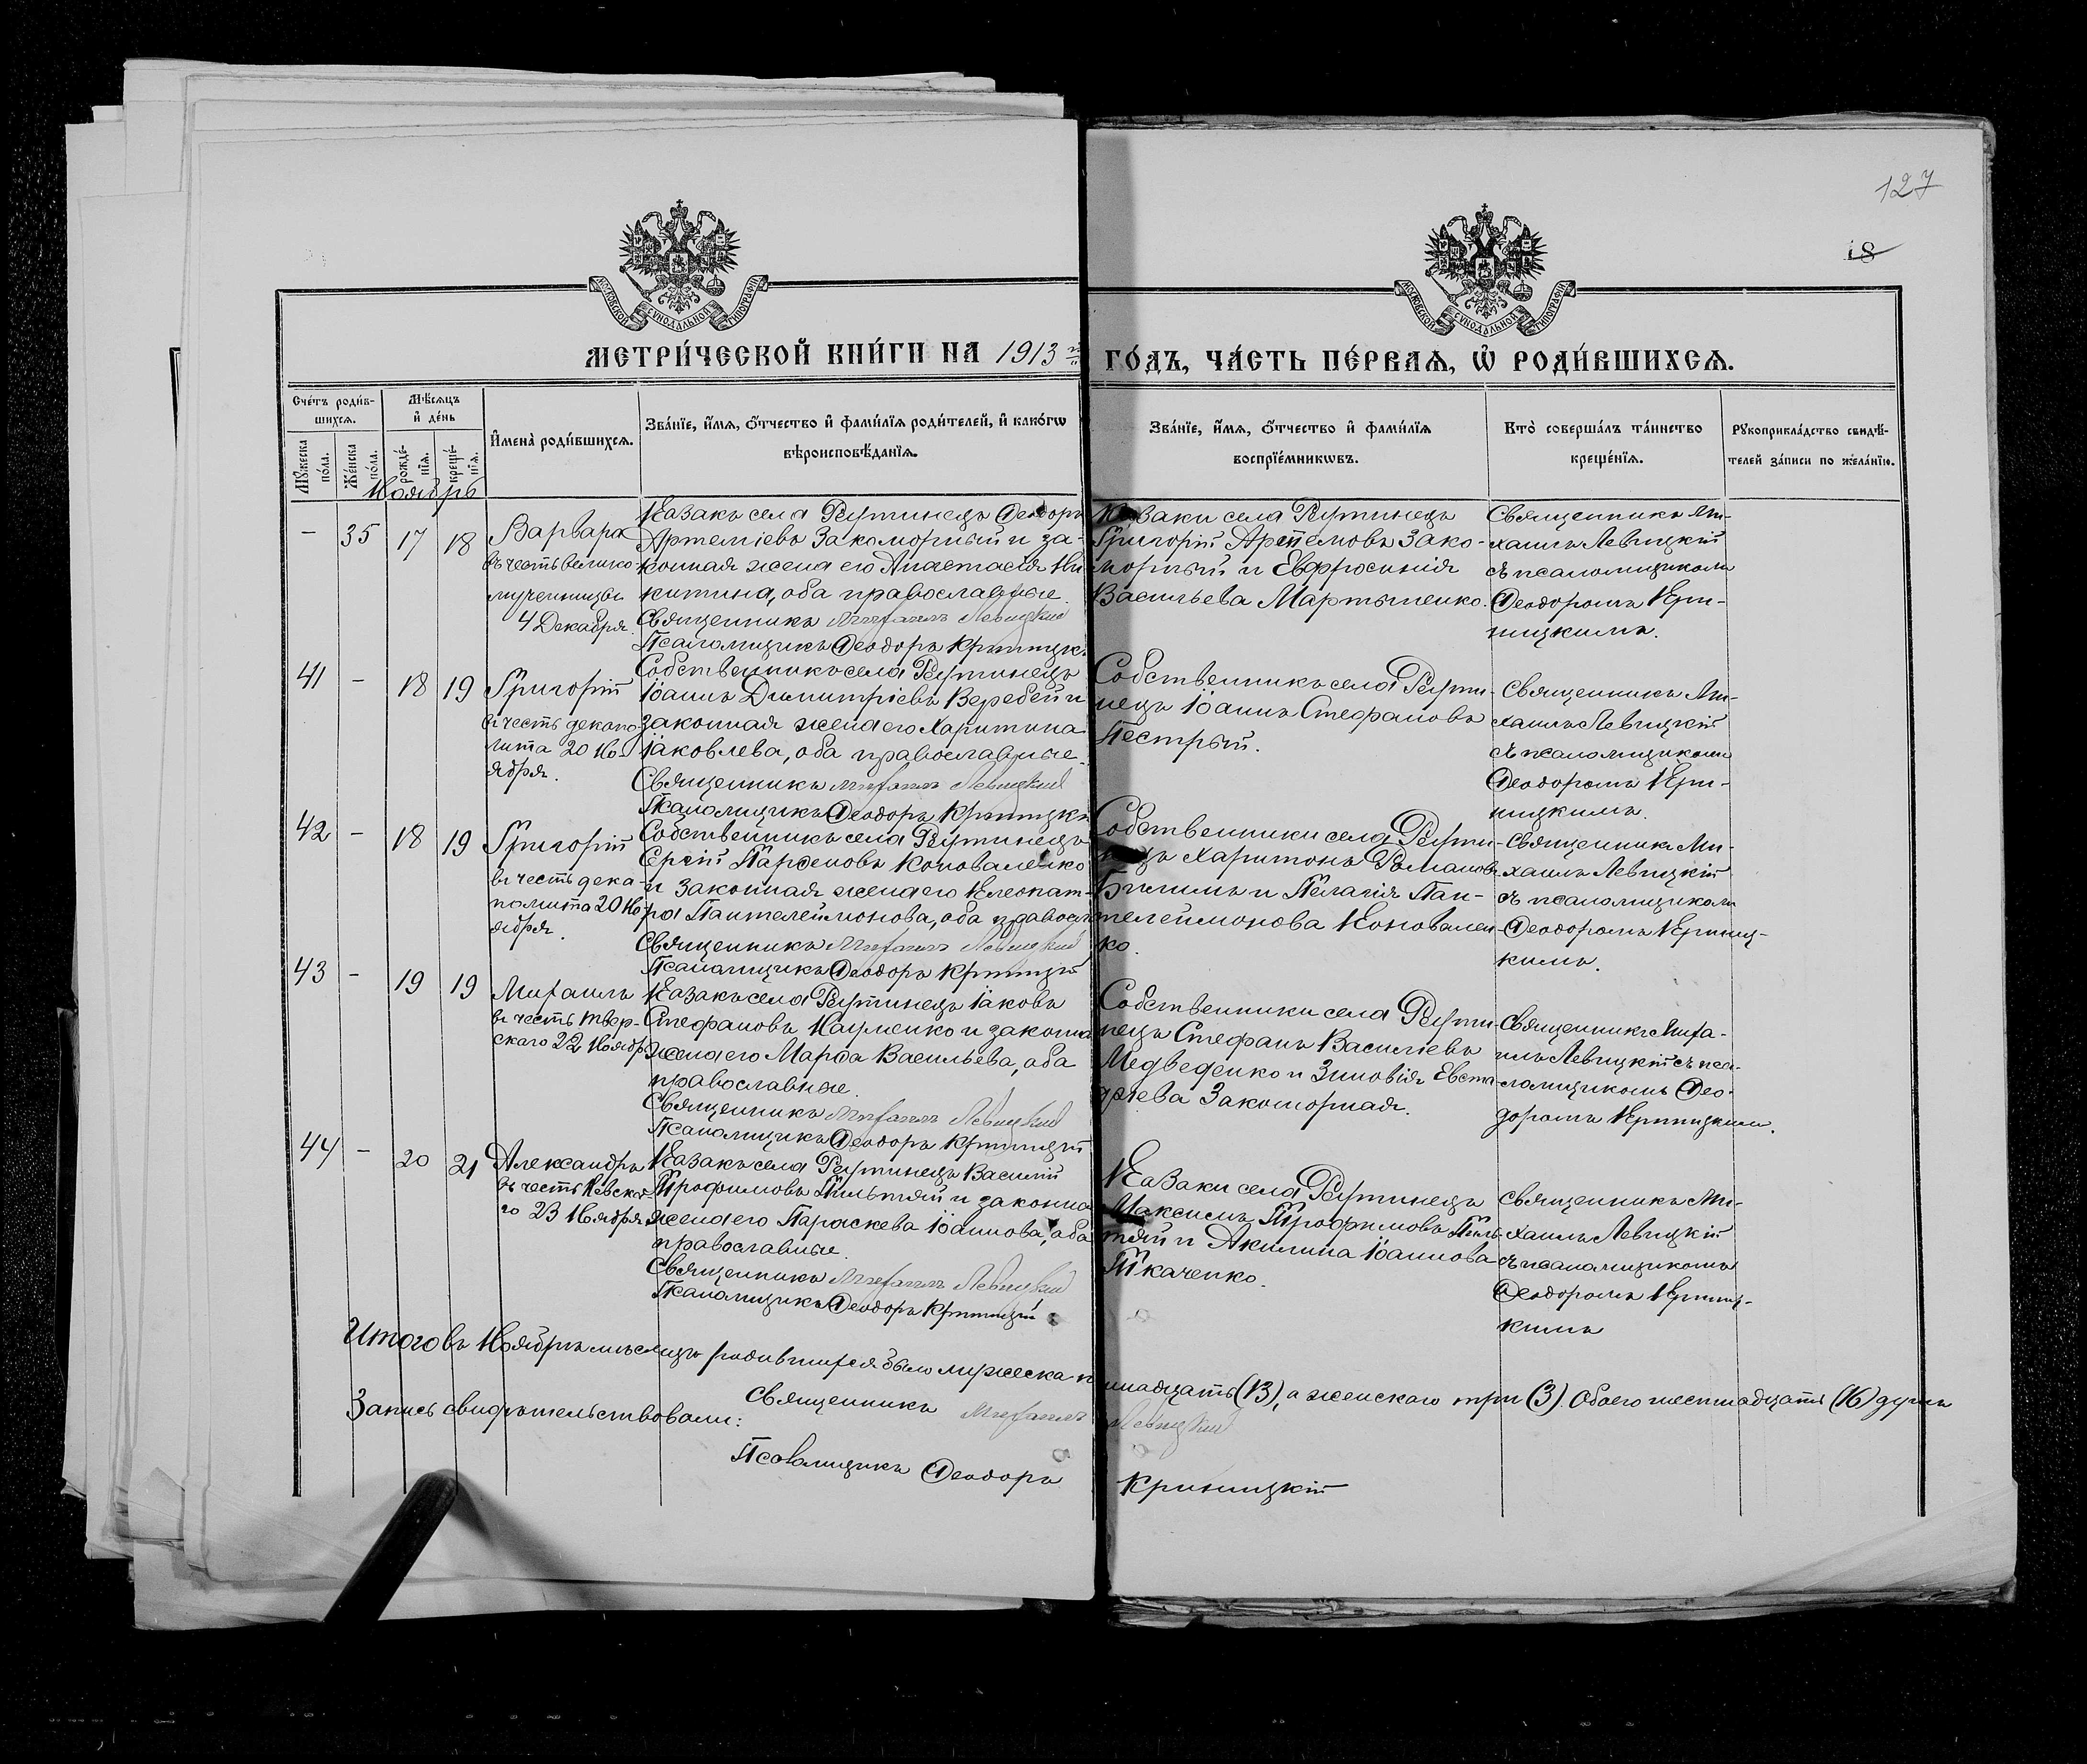 127
18
МОСКОВСКОЙ СУНОДАЛЬНОЙ ТИПОГРАФІИ
МОСКОВСКОЙ СУНОДАЛЬНОЙ ТИПОГРАФІИ
МЕТРИ́ЧЕСКОЙ КНИ́ГИ НА 1913 ГО́ДЪ, ЧА́СТЬ ПЕ́РВАѦ, Ѡ҆ РОДИ́ВШИХСѦ.
Сче́тъ роди́в-
шихсѧ.
Мѣ́сѧцъ
и҆ де́нь
Мꙋ́жеска
по́ла.
Же́нска
по́ла.
рожде́-
нїѧ.
креще́-
нїѧ.
И҆мена̀ роди́вшихсѧ.
Зва́нїе, и҆́мѧ, ѻ҆́тчество и҆ фамі́лїѧ роди́телей, и҆ како́гѡ
вѣроисповѣ́данїѧ.
Зва́нїе, и҆́мѧ, ѻ҆́тчество и҆ фамі́лїѧ
воспрїе́мникѡвъ.
Кто̀ соверша́лъ та́инство
креще́нїѧ.
Рꙋкоприкла́дство свидѣ́-
телей за́писи по жела́нїю.
Ноябрь
- 35 17 18
Варвара
въ честь велико-
мученницы
4 Декабря.
Казакъ села Реутинецъ Ѳеодоръ
Артеміевъ Закоморный и за-
конная жена его Анастасія Ни
китина, оба православные.
Священникъ Михаилъ Левицкий
Псаломщикъ Ѳеодоръ Криницкі
Казаки села Реутинецъ
Григорій Артемовъ Зако-
морный и Евфросинія
Васильева Мартыненко.
Священникъ Ми-
хаилъ Левицкій
съ псаломщикомъ
Ѳеодоромъ Кри-
ницкимъ.
41 - 18 19
Григорій
въ честь декапо-
лита 20 Но-
ября.
Собственникъ села Реутинецъ
Іоаннъ Димитріевъ Веребей и
законная жена его Харитина
Іаковлева, оба православные.
Священникъ Михаилъ Левицкий
Псаломщикъ Ѳеодоръ Криницкі
Собственникъ села Реути-
нецъ Іоаннъ Стефановъ
Пестрый.
Священникъ Ми-
хаилъ Левицкій
съ псаломщикомъ
Ѳеодоромъ Кри-
ницкимъ.
42 - 18 19
Григорій
въ честь дека-
полита 20 Но-
ября.
Собственникъ села Реутинецъ
Сергій Парѳеновъ Коноваленко
и законная жена его Клеопат-
ра Пантелеимонова, оба правосл
Священникъ Михаилъ Левицкий
Псаломщикъ Ѳеодоръ Криницкій
Собственники села Реути-
нецъ Харитонъ Романовъ
и Пелагія Пан-
телеимонова Коновален-
ко.
Священникъ Ми-
хаилъ Левицкій
съ псаломщикомъ
Ѳеодоромъ Криниц-
кимъ.
43 - 19 19
Михаилъ
въ честь твер-
скаго 22 Ноябр.
Казакъ села Реутинецъ Іаковъ
Стефановъ Науменко и законна
жена его Марѳа Васильева, оба
православные.
Священникъ Михаилъ Левицкий
Псаломщикъ Ѳеодоръ Криницкій
Собственники села Реути-
нецъ Стефанъ Василіевъ
Медведенко и Зиновія Евста-
фіева Закоморная.
Священникъ Миха-
илъ Левицкій съ пса-
ломщикомъ Ѳео-
доромъ Криницкимъ.
44 - 20 21
Александръ
въ честь Невска-
го 23 Ноября
Казакъ села Реутинецъ Василій
Трофимовъ Пильтяй и законна
жена его Параскева Іоаннова, оба
православные.
Священникъ Михаилъ Левицкий
Псаломщикъ Ѳеодоръ Криницкій
Казаки села Реутинецъ
Максимъ Трофимовъ Пиль-
тяй и Акилина Іоаннова
Ткаченко.
Священникъ Ми-
хаилъ Левицкій
съ псаломщикомъ
Ѳеодоромъ Криниц-
кимъ
Итого въ Ноябрѣ мѣсяцѣ родившихся было мужеска п надцать (13), а женскаго три (3). Обоего шестнадцать (16) душъ
Запись свидѣтельствовали:
Священникъ Михаилъ Левицкий
Псаломщикъ Ѳеодоръ Криницкій